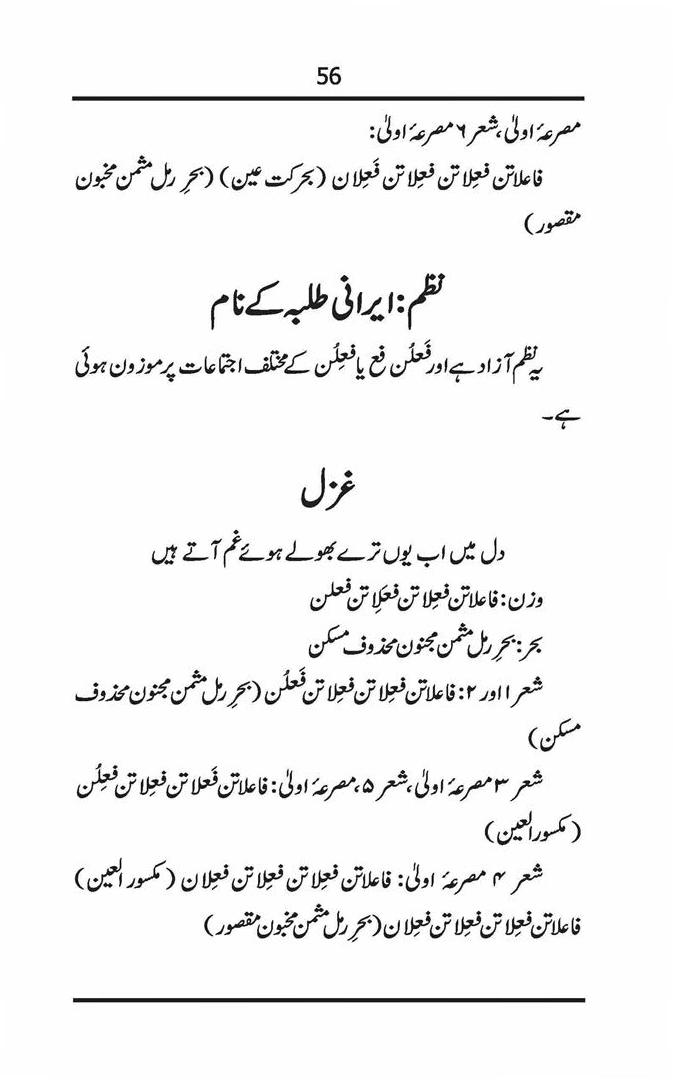 56
مصرعۂ اولیٰ، شعر ۶ مصرعۂ اولیٰ:
فاعلاتن فعِلاتن فعِلاتن فَعِلان (بحرکت عین) (بحرِ رمل مثمن مخبون
مقصور)
نظم: ایرانی طلبہ کے نام
یہ نظم آزاد ہے اور فَعلُن فع یا فعِلُن کے مختلف اجتماعات پر موزون ہوئی
ہے۔
غزل
دل میں اب یوں ترے بھولے ہوئے غم آتے ہیں
وزن: فاعلاتن فعِلاتن فعَلِاتن فعلن
بحر: بحرِ رمل مثمن مجنون محذوف مسکن
شعر ۱ اور ۲: فاعلاتن فعلاتن فعلاتن فَعلُن (بحرِ رمل مثمن مجنون محذوف
مسکن)
شعر ۳ مصرعۂ اولیٰ، شعر ۵، مصرعۂ اولیٰ: فاعلاتن فَعلاتن فعِلاتن فعِلُن
(مکسور العین)
شعر ۴ مصرعۂ اولیٰ: فاعلاتن فعِلاتن فعِلاتن فعِلان (مکسور العین)
فاعلاتن فعِلاتن فعِلاتن فعِلان (بحرِ رمل مثمن مخبون مقصور)